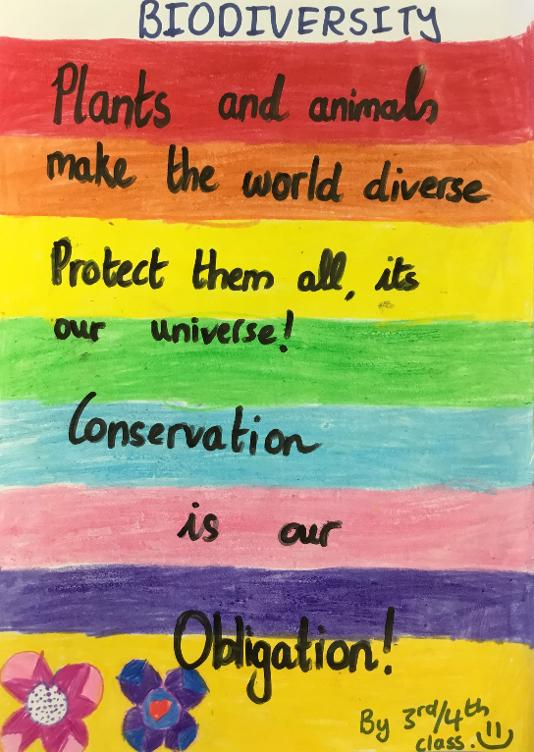 BIODIVERSITY
Plants and animals
make the world diverse
Protect them all, its
our universe!
Conservation
is our
Obligation!
By 3rd/4th
class.